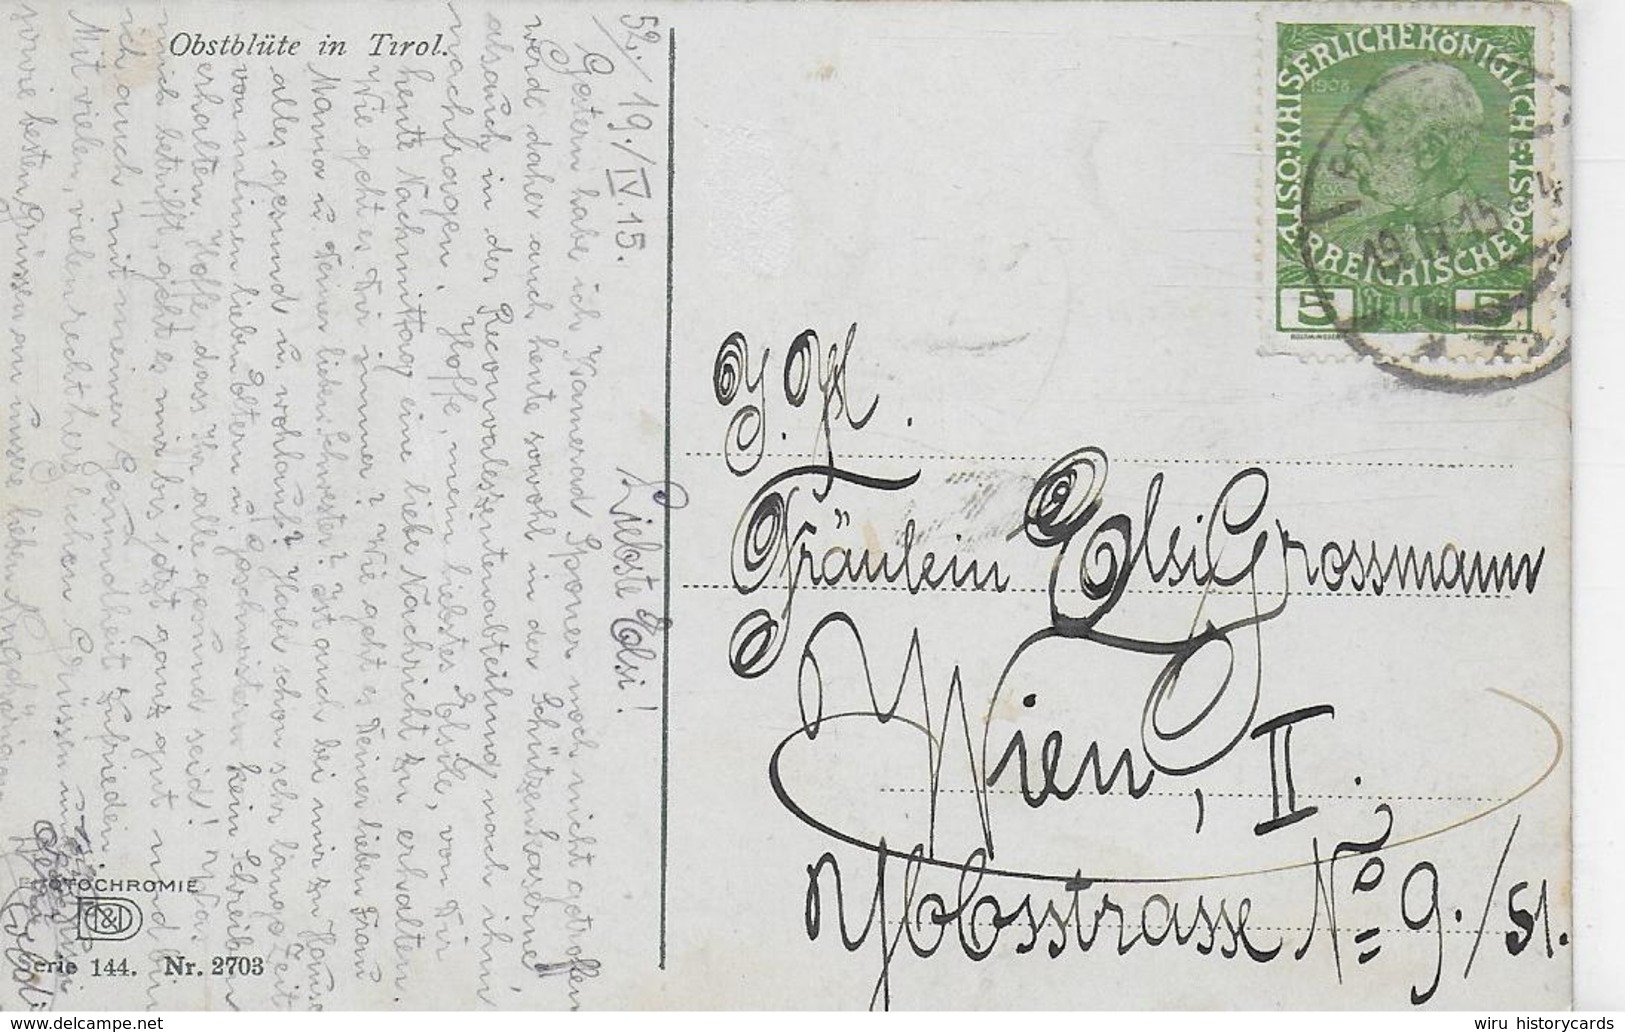 Obstblüte in Tirol.
52./ 19./IV.15.
Liebste Elsi!
Gestern habe ich Kamerad Sponer noch nicht getroffen
werde daher auch heute sowohl in der Schützenkaserne,
als auch in der Reconvaleszentenabteilung nach ihm
nachfragen. Hoffe, mein liebstes Elsile, von Dir
heute Nachmittag eine liebe Nachricht zu erhalten.
Wie geht es Dir immer? Wie geht es Deiner lieben Frau
Mama u. Deiner lieben Schwester? Ist auch bei mir zu Hause
alles gesund u. wohlauf? Habe schon sehr lange Zeit
von meinen lieben Eltern u. Geschwistern kein Schreiben
erhalten. Hoffe, dass Ihr alle gesund seid! Was
mich betrifft, geht es mir bis jetzt ganz gut und bin
ich auch mit meiner Gesundheit zufrieden.
Mit vielen, vielen recht herzlichen Grüssen und
sowie besten Grüssen an unsere lieben Angehörigen
PHOTOCHROMIE
Serie 144. Nr. 2703
KAISERLICHE KÖNIGLICHE
ÖSTERREICHISCHE POST
1908
5 HELLER 5
19.IV.15
Fräulein Elsi Grossmann
Wien, II.
Ybbsstrasse No 9./51.
wiru historycards
www.delcampe.net